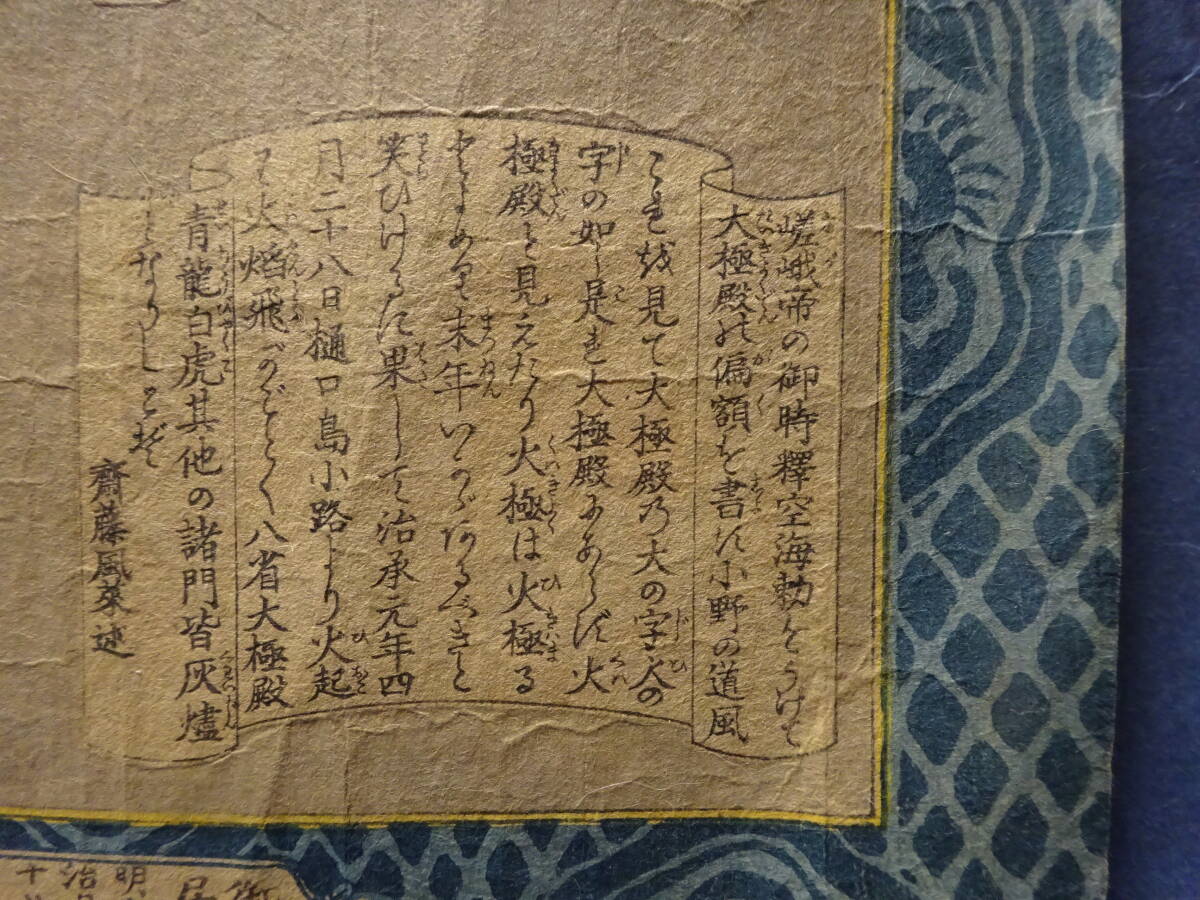 嵯峨帝の御時釋空海勅をうけて
大極殿の偏額を書に小野の道風
これを見て大極殿乃大の字火の
字の如し是れ大極殿にあらず火
極殿と見えたり火極は火極る
とよめり末年いかゞあるべきと
笑ひけるに果して治承元年四
月二十八日樋口島小路より火起
て火焰飛がごとく八省大極殿
青龍白虎其他の諸門皆灰燼
となりしとぞ
齋藤風菜述
明
治
十